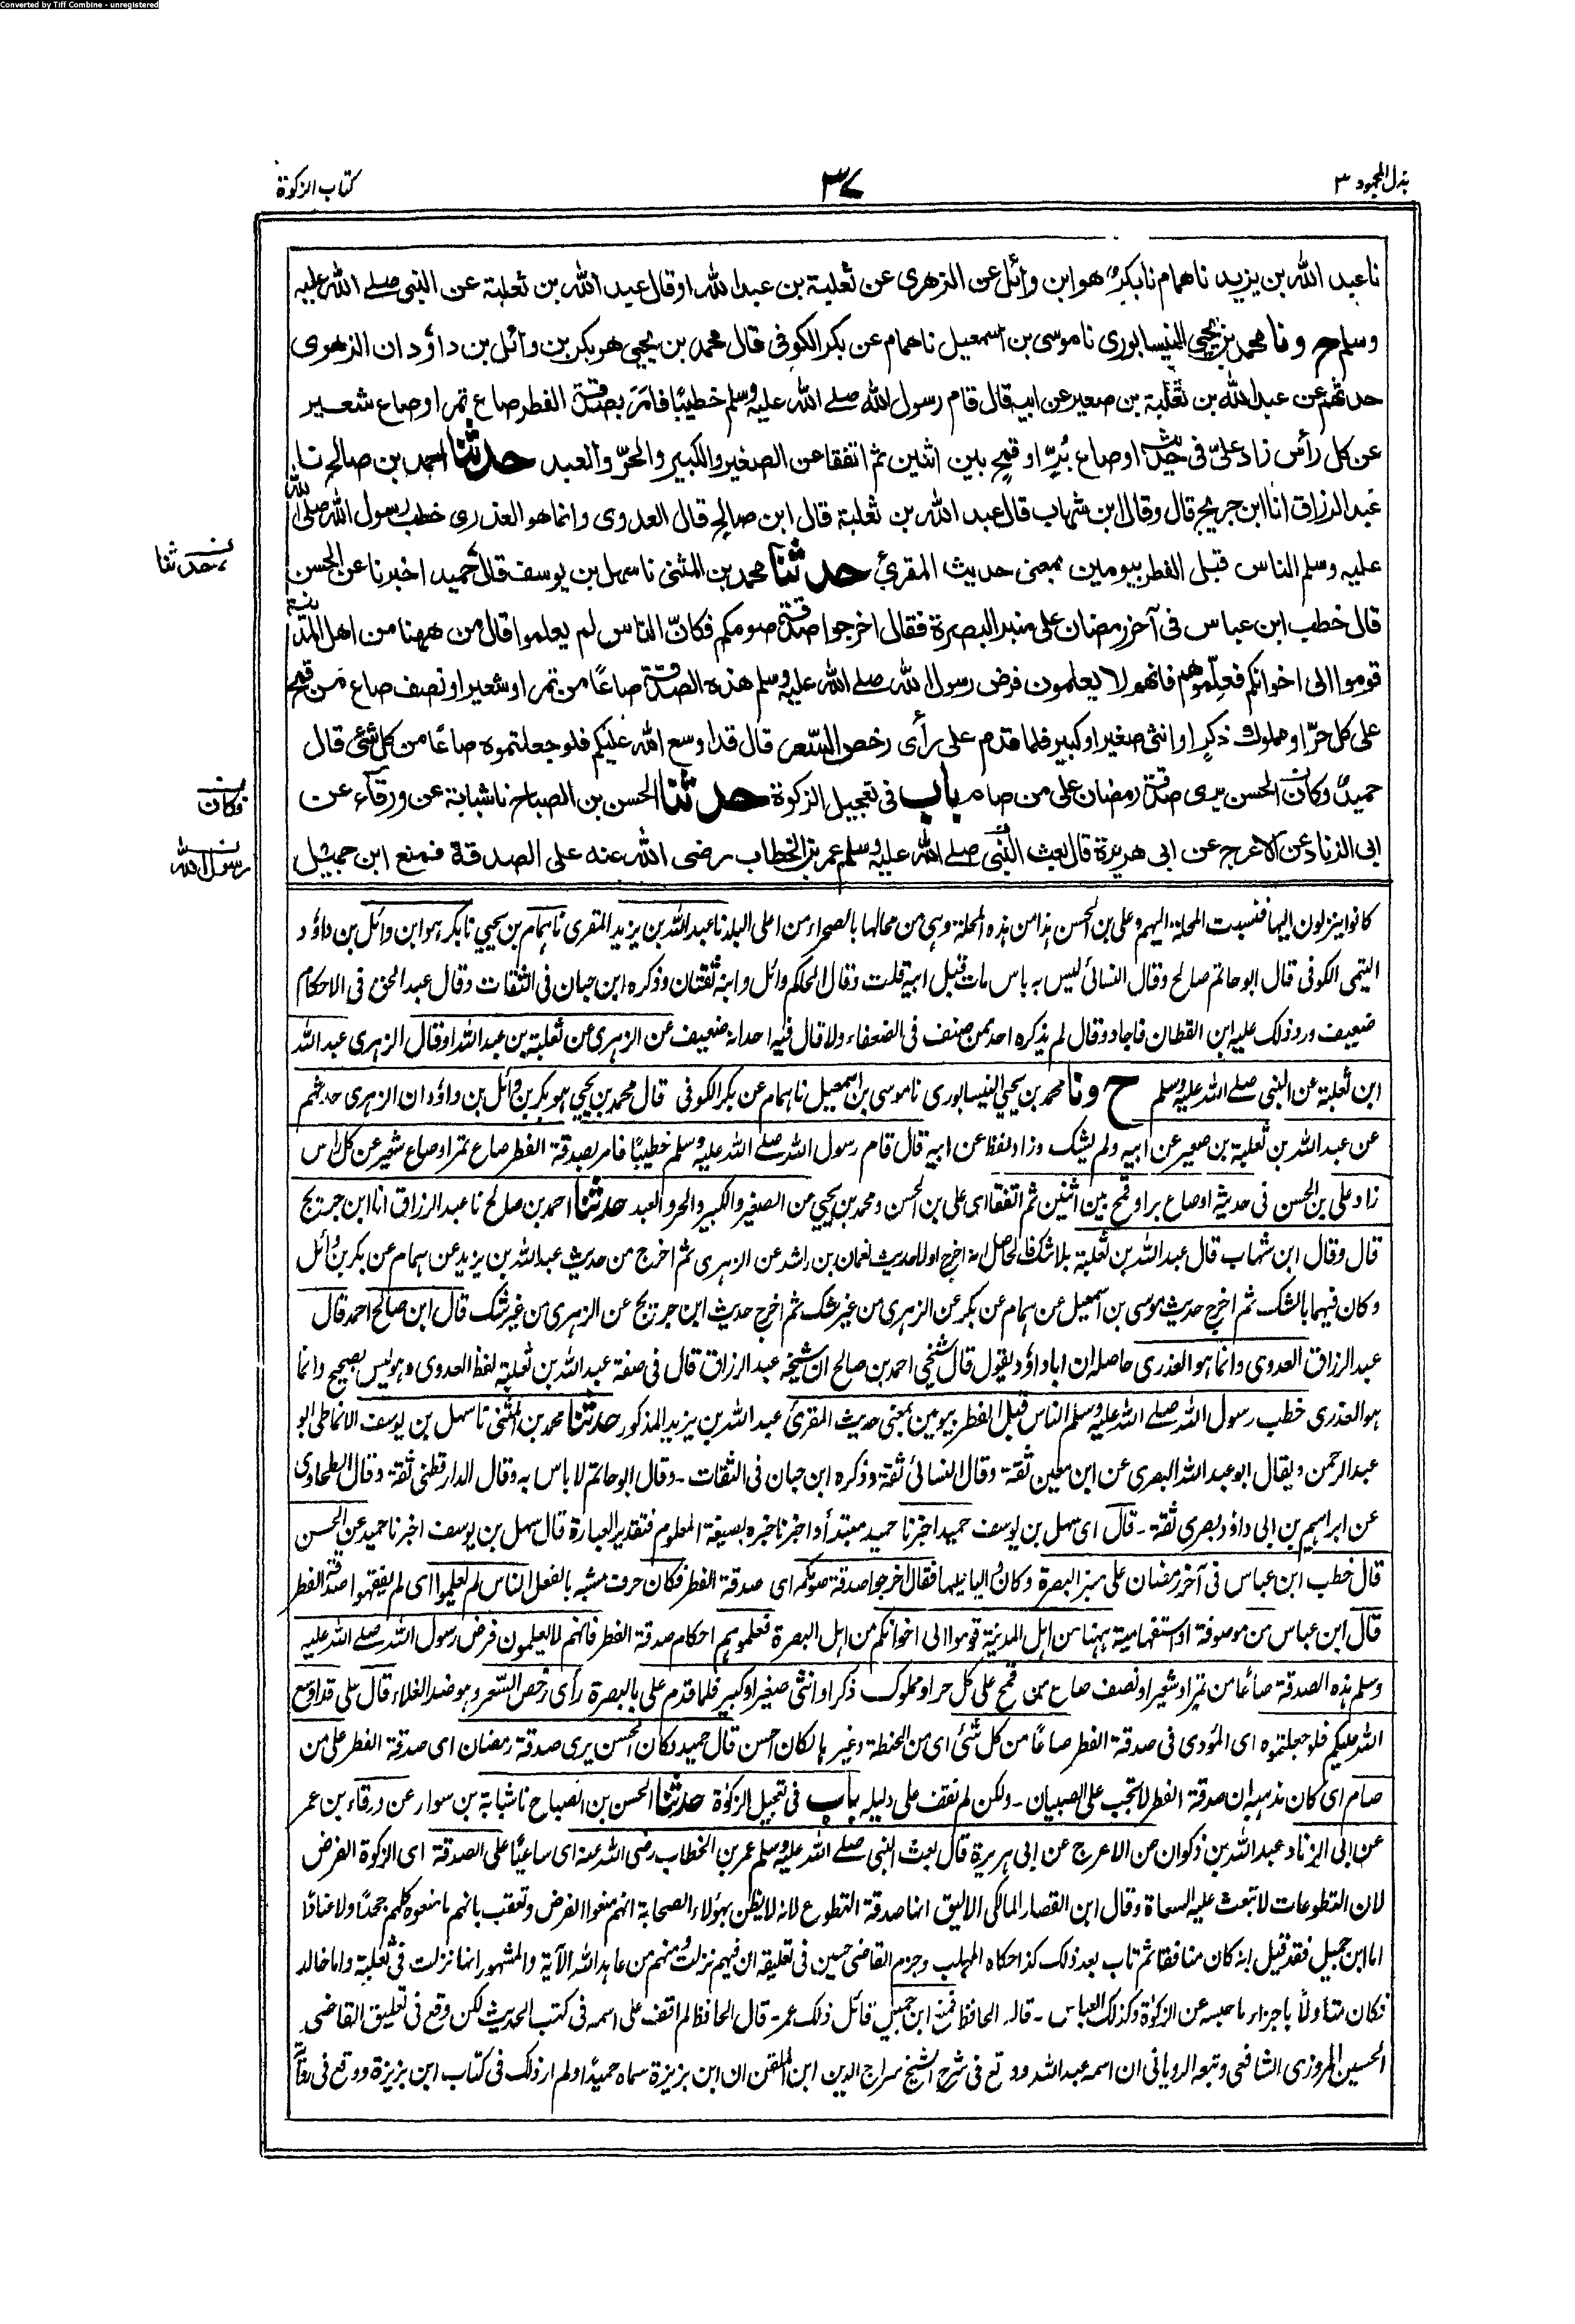 Converted by Tiff Combine - unregistered
بذل المجهود ٣
٣٧
كتاب الزكوة
نا عبد الله بن يزيد ناهمام نا بكر هو ابن وائل عن الزهرى عن ثعلبة بن عبد الله او قال عبد الله بن ثعلبة عن النبى صلے الله عليه
وسلم ح ونا محمد بن يحيى النيسابورى نا موسى بن اسمعيل ناهمام عن بكر الكوفى قال محمد بن يحيى هو بكر بن وائل بن داؤد ان الزهرى
حدثهم عن عبد الله بن ثعلبة بن صعير عن ابيه قال قام رسول الله صلے الله عليه وسلم خطيبًا فامَر بصدقة الفطر صاع تمر او صاع شعير
عن كل رأس زاد علىّ فى حديثه او صاع بُرٍّ او قمح بين اثنين ثم اتفقا عن الصغير والكبير والحرّ والعبد حدثنا احمد بن صالح نا
عبد الرزاق انا ابن جريج قال وقال ابن شهاب قال عبد الله بن ثعلبة قال ابن صالح قال العدوى وانما هو العذرى خطب رسول الله صلى الله
عليه وسلم الناس قبل الفطر بيومين بمعنى حديث المقرئ حدثنا محمد بن المثنى نا سهل بن يوسف قال حُميد اخبرنا عن الحسن
حدثنا
قال خطب ابن عباس فى آخر رمضان على منبر البصرة فقال اخرجوا صدقة صومكم فكانّ الناس لم يعلموا قال من ههنا من اهل المدينة
قوموا الى اخوانكم فعلّموهم فانهم لا يعلمون فرض رسول الله صلے الله عليه وسلم هذه الصدقة صاعًا من تمر او شعير او نصف صاع من قمح
على كل حرّ او مملوك ذكرٍ او انثى صغير او كبير فلما قدم على رأى رخص السعر قال قد اوسع الله عليكم فلو جعلتموه صاعًا من كل شئ قال
حميدٌ وكان الحسن يرى صدقة رمضان على من صام باب فى تعجيل الزكوة حدثنا الحسن بن الصباح نا شبابة عن ورقاء عن
فكان
ابى الزناد عن الاعرج عن ابى هريرة قال بعث النبى صلے الله عليه وسلم عمر بن الخطاب رضى الله عنه على الصدقة فمنع ابن جميل
رسول الله
كانوا ينزلون اليها فنسبت المحلة اليهم وعلى بن الحسن هذا من هذه المحلة وهى من محالها بالصحراء من اعلى البلد نا عبد الله بن يزيد المقرى نا همام بن يحيى نا بكر هو ابن وائل بن داؤد
التيمى الكوفى قال ابو حاتم صالح وقال النسائى ليس به باس مات قبل ابيه قلت وقال الحاكم وائل وابنه ثقتان وذكره ابن حبان فى الثقات وقال عبد الحق فى الاحكام
ضعيف ورد ذلك عليه ابن القطان فاجاد وقال لم يذكره احد ممن صنف فى الضعفاء ولا قال فيه احد انه ضعيف عن الزهرى عن ثعلبة بن عبد الله او قال الزهرى عبد الله
ابن ثعلبة عن النبى صلے الله عليه وسلم ح ونا محمد بن يحيى النيسابورى نا موسى بن اسمعيل نا همام عن بكر الكوفى قال محمد بن يحيى هو بكر بن وائل بن داؤد ان الزهرى حدثهم
عن عبد الله بن ثعلبة بن صعير عن ابيه ولم يشك وزاد لفظ عن ابيه قال قام رسول الله صلے الله عليه وسلم خطيبًا فامر بصدقة الفطر صاع تمر او صاع شعير عن كل رأس
زاد على بن الحسن فى حديثه او صاع بر او قمح بين اثنين ثم اتفقا اى على بن الحسن ومحمد بن يحيى عن الصغير والكبير والحر والعبد حدثنا احمد بن صالح نا عبد الرزاق انا ابن جريج
قال وقال ابن شهاب قال عبد الله بن ثعلبة بلا شك فالحاصل انه اخرج اولا حديث نعمان بن راشد عن الزهرى ثم اخرج من حديث عبد الله بن يزيد عن همام عن بكر بن وائل
وكان فيهما بالشك ثم اخرج حديث موسى بن اسمعيل عن همام عن بكر عن الزهرى من غير شك ثم اخرج حديث ابن جريج عن الزهرى من غير شك قال ابن صالح احمد قال
عبد الرزاق العدوى وانما هو العذرى حاصله ان ابا داؤد يقول قال شيخى احمد بن صالح ان شيخه عبد الرزاق قال فى صفة عبد الله بن ثعلبة لفظ العدوى وهو ليس بصحيح وانما
هو العذرى خطب رسول الله صلے الله عليه وسلم الناس قبل الفطر بيومين بمعنى حديث المقرئ عبد الله بن يزيد المذكور حدثنا محمد بن المثنى نا سهل بن يوسف الانماطى ابو
عبد الرحمن ويقال ابو عبد الله البصرى عن ابن معين ثقة وقال النسائى ثقة وذكره ابن حبان فى الثقات - وقال ابو حاتم لا باس به وقال الدارقطنى ثقة وقال الطحاوى
عن ابراهيم بن ابى داؤد بصرى ثقة - قال اى سهل بن يوسف حميد اخبرنا حميد مبتدأ واخبرنا خبره بصيغة المعلوم فتقدير العبارة قال سهل بن يوسف اخبرنا حميد عن الحسن
قال خطب ابن عباس فى آخر رمضان على منبر البصرة وكان واليا عليها فقال اخرجوا صدقة صومكم اى صدقة الفطر فكان حرف مشبه بالفعل الناس لم يعلموا اى لم يفقهوا صدقة الفطر
قال ابن عباس من موصوفة او استفهامية ههنا من اهل المدينة قوموا الى اخوانكم من اهل البصرة فعلموهم احكام صدقة الفطر فانهم لا يعلمون فرض رسول الله صلے الله عليه
وسلم هذه الصدقة صاعًا من تمر او شعير او نصف صاع من قمح على كل حر او مملوك ذكر او انثى صغير او كبير فلما قدم على بالبصرة رأى رخص السعر وهو ضد الغلاء قال على قد اوسع
الله عليكم فلو جعلتموه اى المؤدى فى صدقة الفطر صاعًا من كل شئ اى من الحنطة وغيرها لكان احسن قال حميد وكان الحسن يرى صدقة رمضان اى صدقة الفطر على من
صام اى كان مذهبه ان صدقة الفطر لا تجب على الصبيان - ولكن لم نقف على دليله باب فى تعجيل الزكوة حدثنا الحسن بن الصباح نا شبابة بن سوار عن ورقاء بن عمر
عن ابى الزناد عبد الله بن ذكوان عن الاعرج عن ابى هريرة قال بعث النبى صلے الله عليه وسلم عمر بن الخطاب رضى الله عنه اى ساعيًا على الصدقة اى الزكوة الفرض
لان التطوعات لا تبعث عليه السعاة وقال ابن القصار المالكى الاليق انها صدقة التطوع لانه لا يظن بهؤلاء الصحابة انهم منعوا الفرض وتعقب بانهم ما منعوه كلهم جحدًا ولا عنادًا
اما ابن جميل فقد قيل انه كان منافقا ثم تاب بعد ذلك كذا حكاه المهلب وجزم القاضى حسين فى تعليقه ان فيهم نزلت ومنهم من عاهد الله الآية والمشهور انها نزلت فى ثعلبة واما خالد
فكان متأولًا باجزاء ما حبسه عن الزكوة وكذلك العباس - قاله الحافظ فمنع ابن جميل قائل ذلك عمر - قال الحافظ لم اقف على اسمه فى كتب الحديث لكن وقع فى تعليق القاضى
الحسين المروزى الشافعى وتبعه الرويانى ان اسمه عبد الله ووقع فى شرح الشيخ سراج الدين ابن الملقن ان ابن بزيزة سماه حميدًا ولم ار ذلك فى كتاب ابن بزيزة ووقع فى رواية